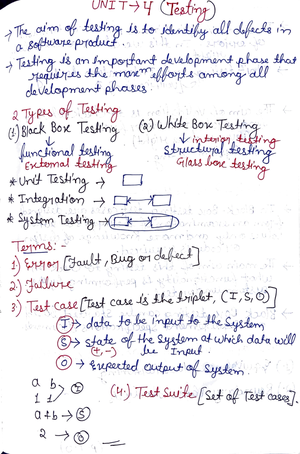 UNIT → 4 (Testing)
→ The aim of testing is to identify all defects in
a software product.
→ Testing is an important development phase that
requires the maxm efforts among all
development phases.
2 Types of Testing
(1) Black Box Testing (2) White Box Testing
↓ functional testing ↓ interior testing
External testing structural testing
Glass box testing
* Unit Testing →
* Integration →
* System Testing →
Terms:-
1) Error [Fault, Bug or defect]
2) Failure
3) Test case [Test case is the triplet, (I, S, O)]
I → data to be input to the system
S → state of the system at which data will
(+, -) be Input.
O → Expected output of system.
a b
1 1 } → I
(4.) Test Suite [Set of Test cases].
a+b → S
2 → O